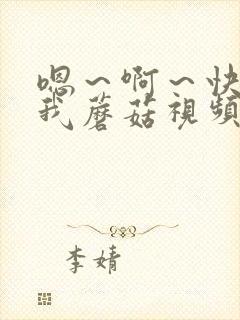 嗯～啊～快
我蘑菇視頻
李婧